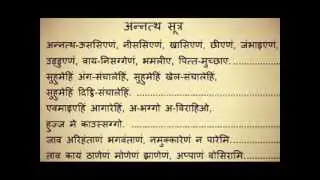 अन्नत्थ सूत्र
अन्नत्थ-ऊससिएणं, नीससिएणं, खासिएणं, छीएणं, जंभाइएणं,
उड्डुएणं, वाय-निसग्गेणं, भमलीए, पित्त-मुच्छाए. ..................
सुहुमेहिं अंग-संचालेहिं, सुहुमेहिं खेल-संचालेहिं,
सुहुमेहिं दिट्ठि-संचालेहिं. ..................
एवमाइएहिं आगारेहिं, अ-भग्गो अ-विराहिओ,
हुज्ज मे काउस्सग्गो. ..................
जाव अरिहंताणं भगवंताणं, नमुक्कारेणं न पारेमि ..........
ताव कायं ठाणेणं मोणेणं झाणेणं, अप्पाणं वोसिरामि ........